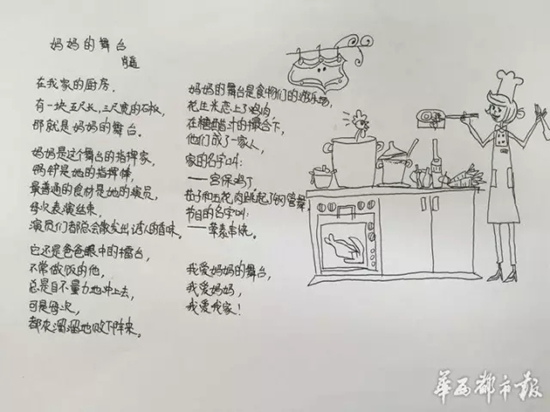 妈妈的舞台
在我家的厨房，
有一块五尺长，三尺宽的石板，
那就是妈妈的舞台。
妈妈是这个舞台的指挥家，
锅铲是她的指挥棒，
最普通的食材是她的演员，
每次表演结束，
演员们都总会散发出诱人的香味。
它还是爸爸眼中的擂台，
不常做饭的他，
总是自不量力地冲上去，
可是每次，
都灰溜溜地败下阵来。
妈妈的舞台是食物们的游乐场，
花生米恋上了鸡肉
在糖醋汁的撮合下，
他们成了一家人，
家的名字叫：
——宫保鸡丁
茄子和五花肉跳起了钢管舞
节目的名字叫：
——荤素串烧。
我爱妈妈的舞台，
我爱妈妈，
我爱我家！
华西都市报